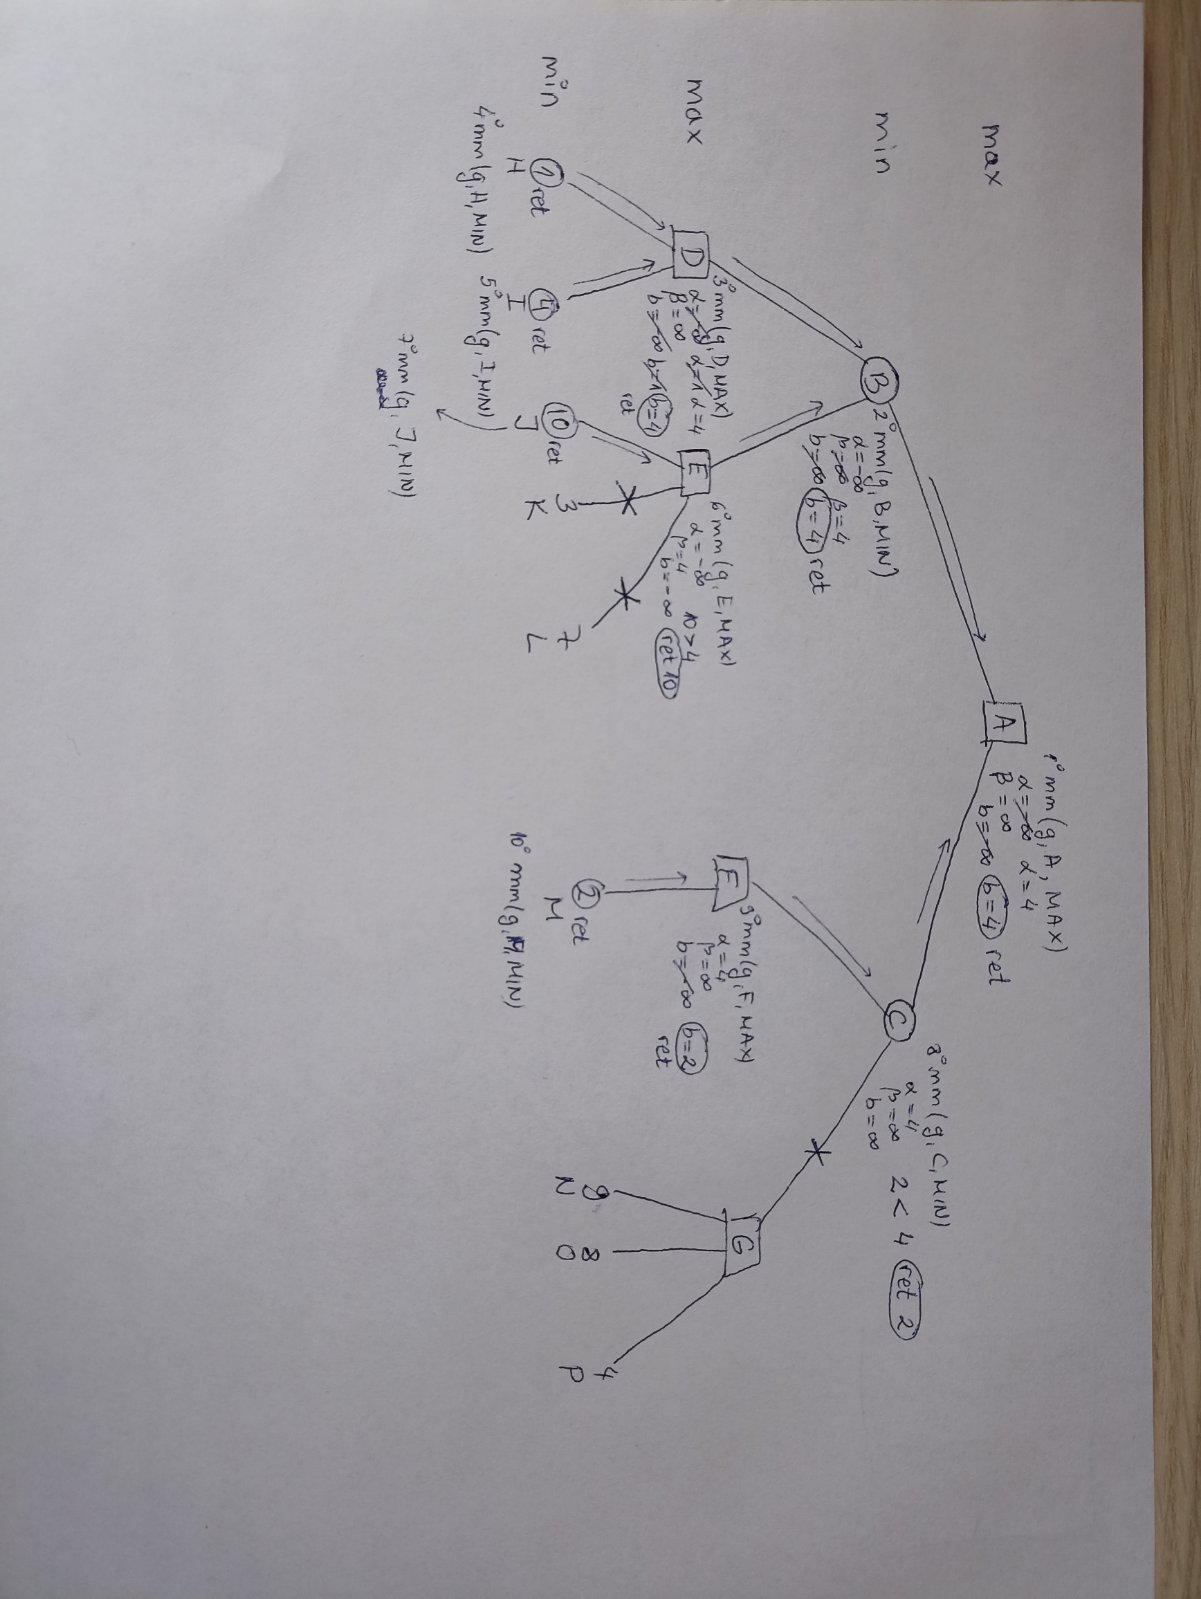 max
A
1° mm(g, A, MAX)
α=-∞ α=4
β=∞
b=-∞ b=4 ret
min
B
2° mm(g, B, MIN)
α=-∞
β=∞ β=4
b=∞ b=4 ret
C
8° mm(g, C, MIN)
α=4
β=∞
b=∞
2<4 ret 2
max
D
3° mm(g, D, MAX)
α=-∞ α=1 α=4
β=∞
b=-∞ b=1 b=4
ret
E
6° mm(g, E, MAX)
α=-∞
β=4
b=-∞
10>4
ret 10
F
9° mm(g, F, MAX)
α=4
β=∞
b=-∞ b=2
ret
G
min
1 ret
H
4° mm(g, H, MIN)
4 ret
I
5° mm(g, I, MIN)
10 ret
J
7° mm(g, J, MIN)
3
K
7
L
2 ret
M
10° mm(g, M, MIN)
9
N
8
O
4
P